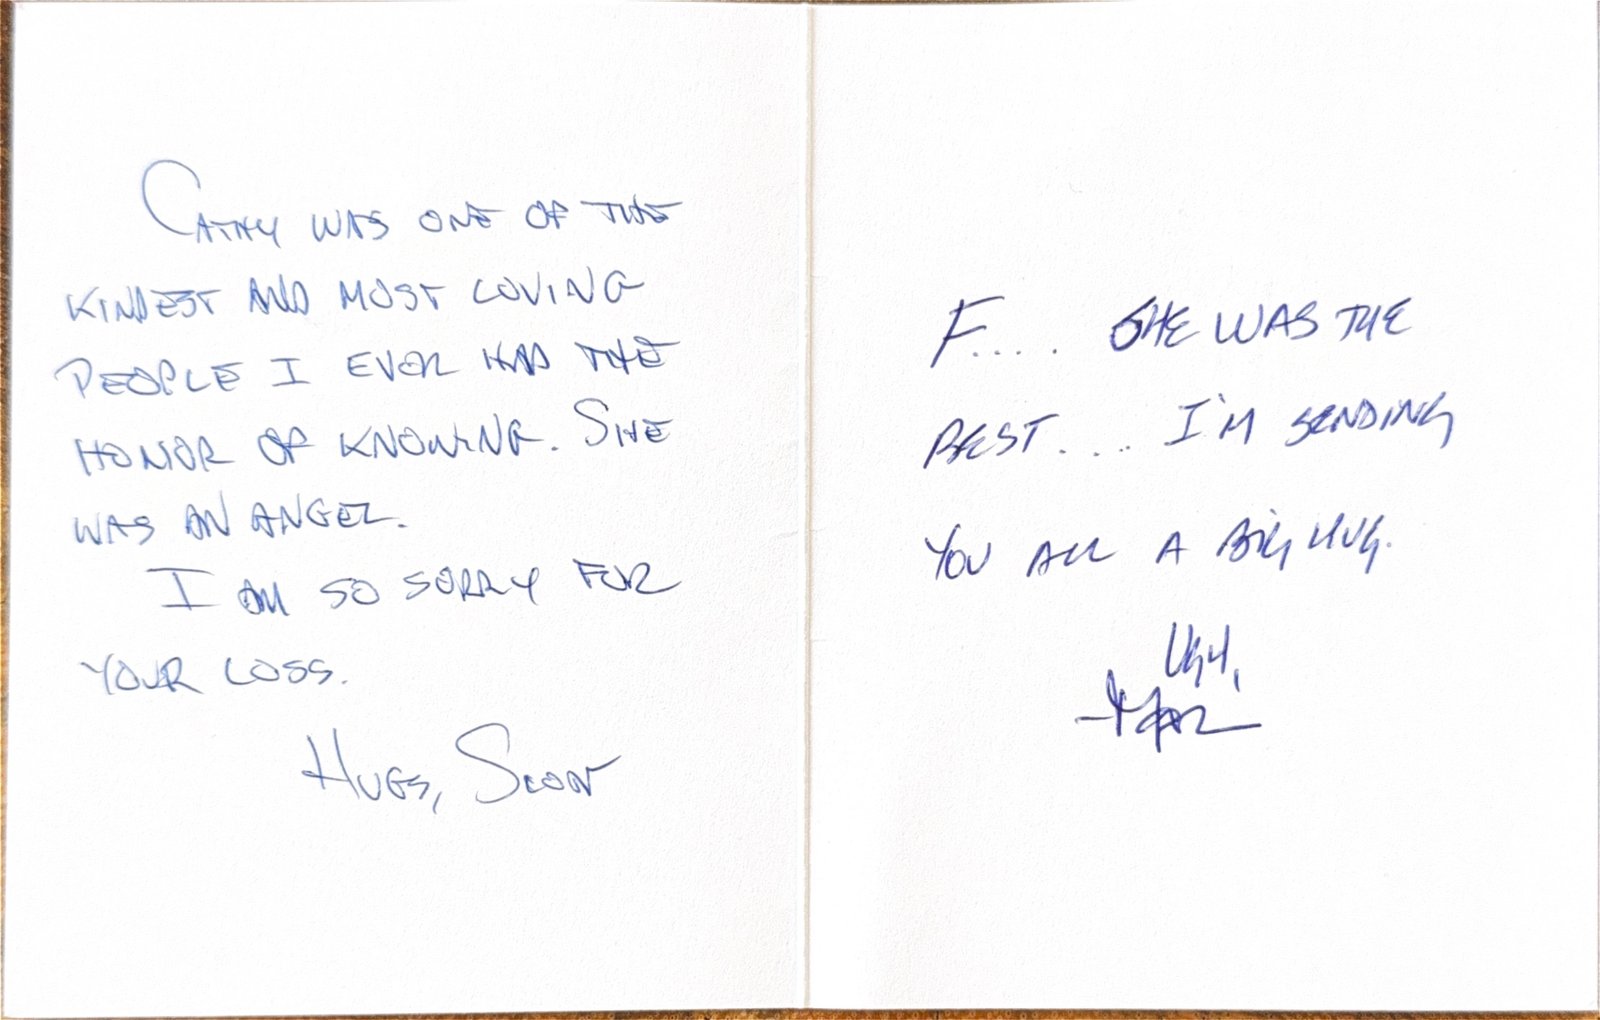 CATHY WAS ONE OF THE
KINDEST AND MOST LOVING
PEOPLE I EVER HAD THE
HONOR OF KNOWING. SHE
WAS AN ANGEL.
I AM SO SORRY FOR
YOUR LOSS.
HUGS, SCOTT
F.... SHE WAS THE
BEST.... I'M SENDING
YOU ALL A BIG HUG.
UGH,